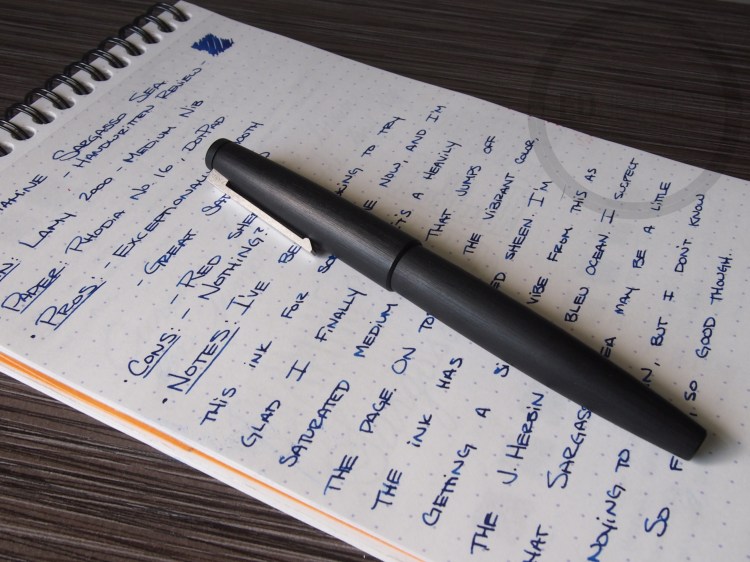 AMINE SARGASSO SEA
- HANDWRITTEN REVIEW -
LAMY 2000 - MEDIUM NIB
PAPER: RHODIA No. 16 DOTPAD
• PROS: - EXCEPTIONAL OOTH
- GREAT
• CONS: - RED SHE
- NOTHING?
• NOTES: I'VE BE KING TO TRY
THIS INK FOR SO E NOW, AND I'M
GLAD I FINALLY 'S A HEAVILY
SATURATED MEDIUM THAT JUMPS OFF
THE PAGE. ON TO THE VIBRANT COLOR,
THE INK HAS ED SHEEN. I'M
GETTING A S VIBE FROM THIS AS
THE J. HERBIN BLEU OCEAN. I SUSPECT
HAT SARGAS EA MAY BE A LITTLE
NOYING TO N, BUT I DON'T KNOW
SO F , SO GOOD THOUGH.